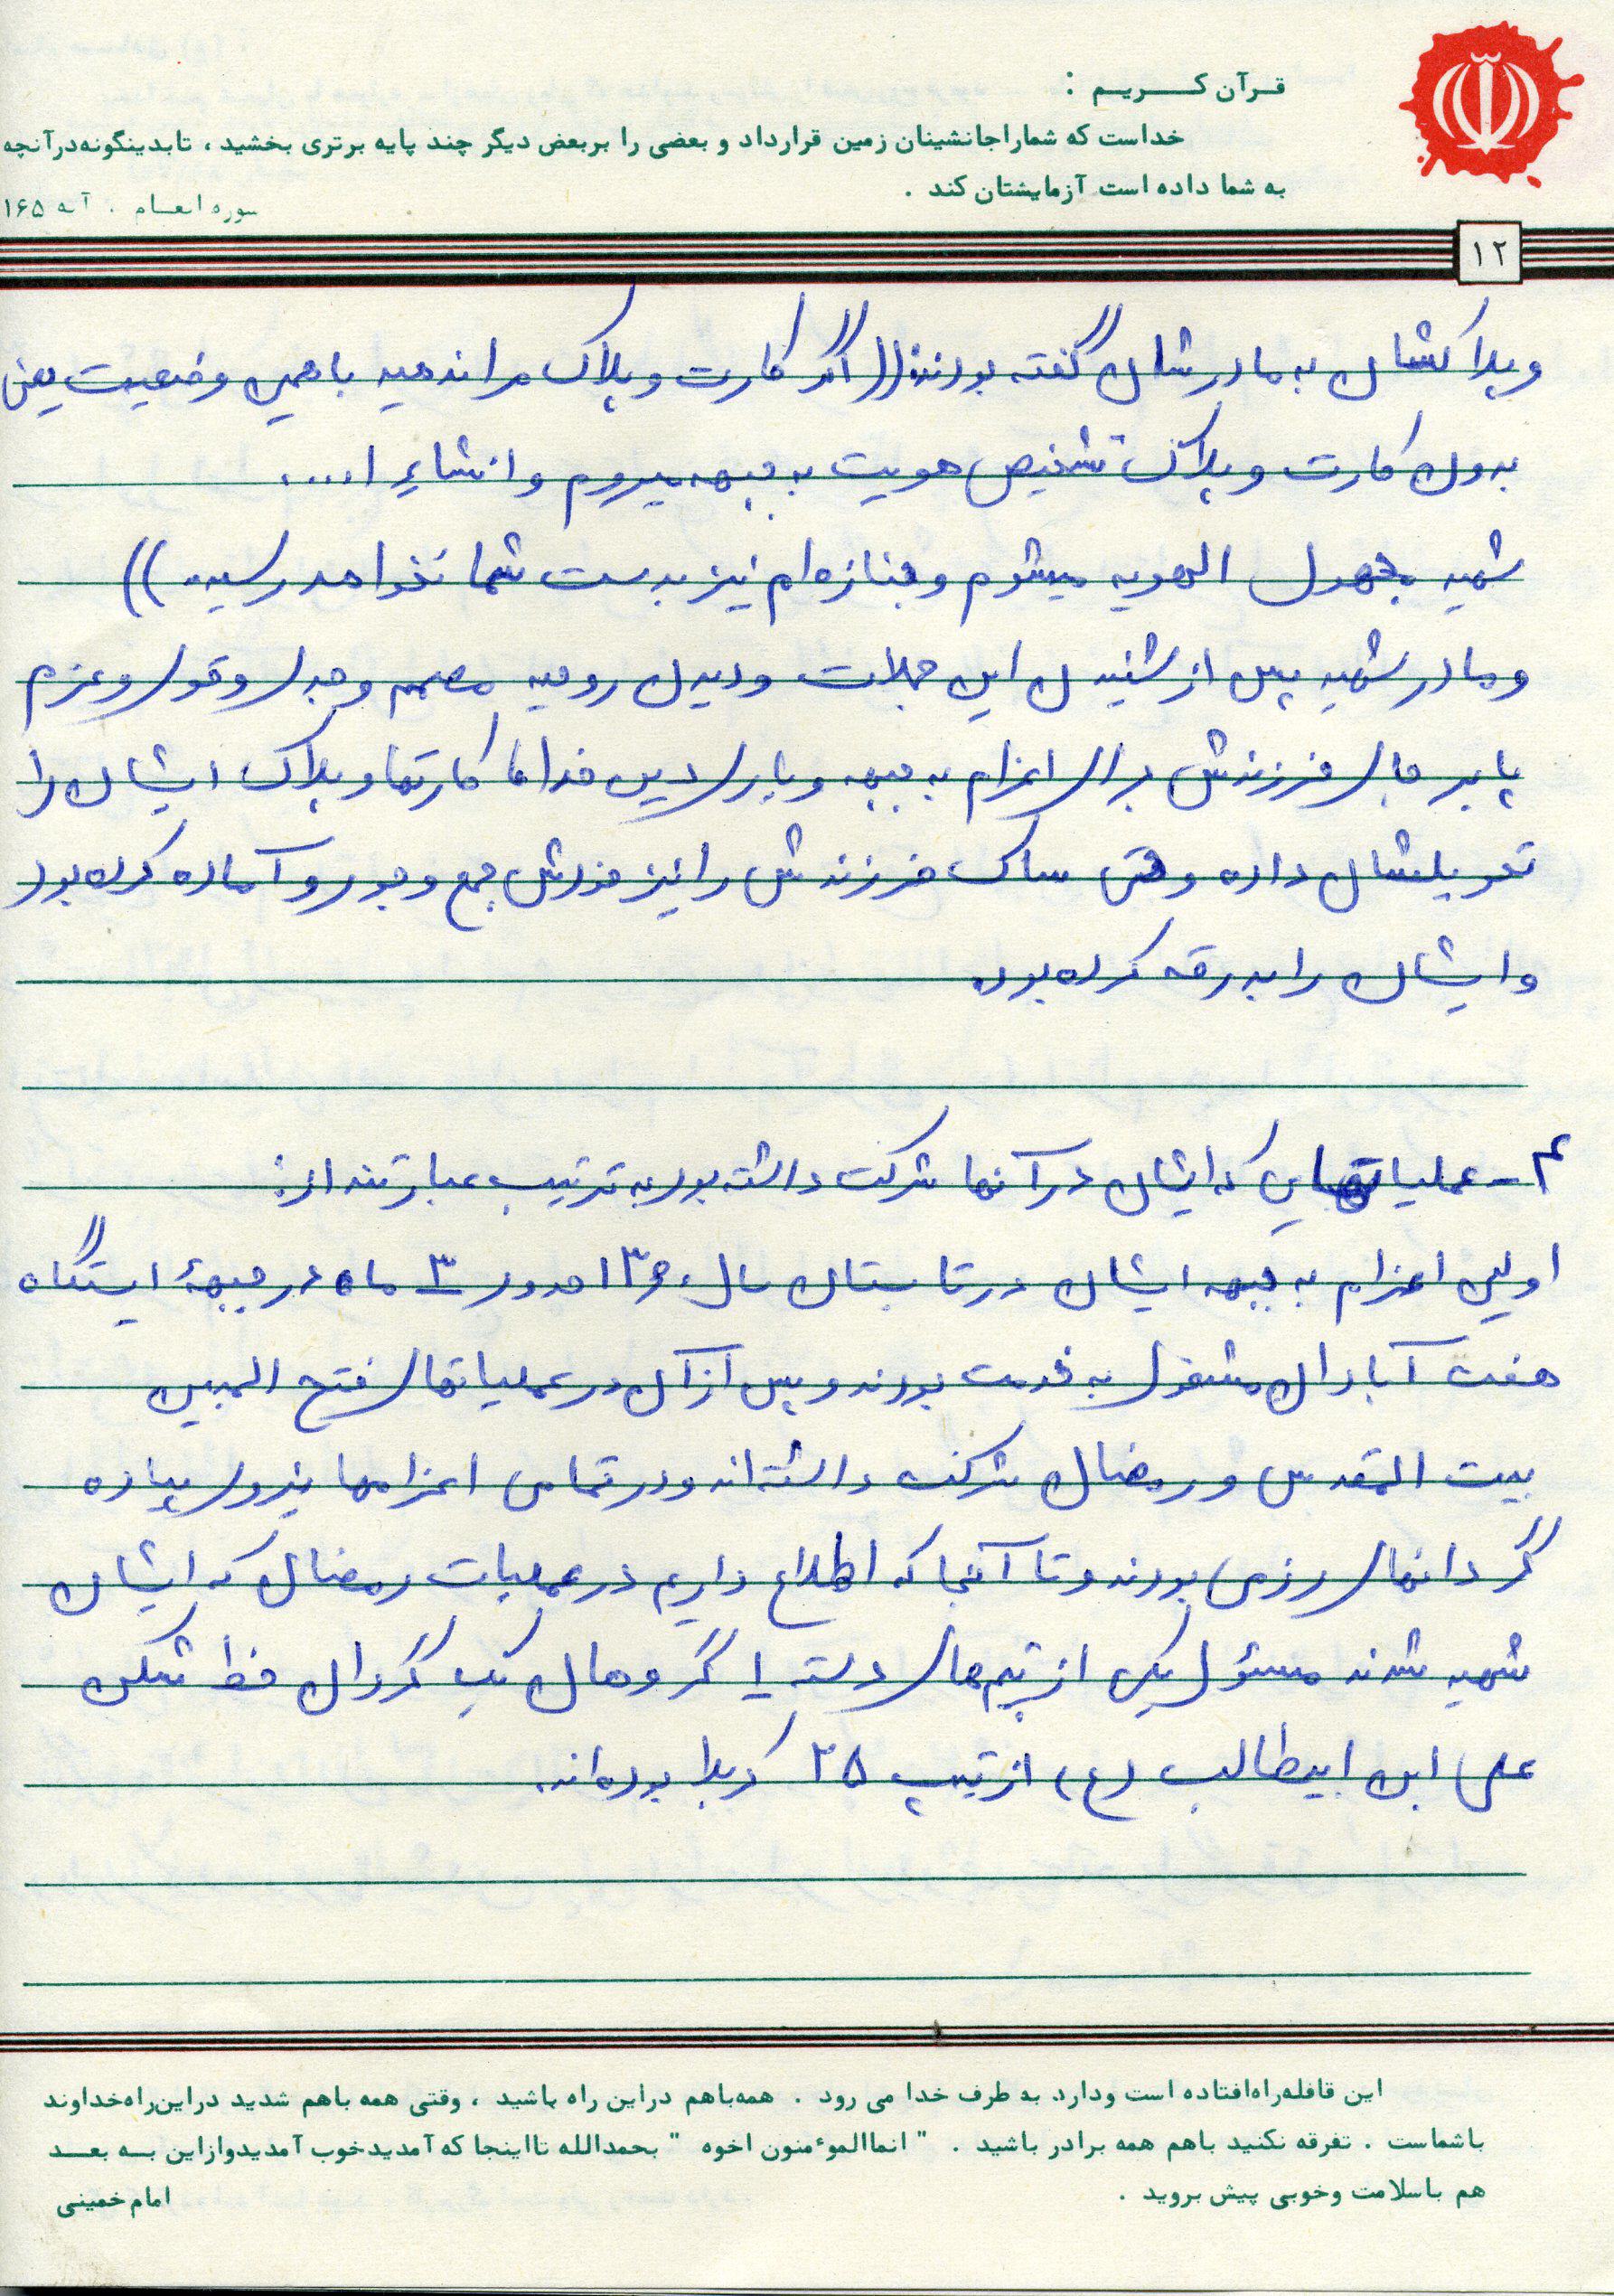 قرآن کریم :
خداست که شما را جانشینان زمین قرار داد و بعضی را بر بعض دیگر چند پایه برتری بخشید ، تا بدینگونه در آنچه
به شما داده است آزمایشتان کند .
سوره انعام . آیه ۱۶۵
۱۲
و پلاکشان به مادرشان گفته بودند: ((اگر کارت و پلاک مرا ندهید با همین وضعیت یعنی
بدون کارت و پلاک تشخیص هویت به جبهه میروم و انشاء ا....
شهید مجهول الهویه میشوم و جنازه‌ام نیز بدست شما نخواهد رسید. ))
و مادر شهید پس از شنیدن این جملات و دیدن روحیه مصمم و جدی و قوی و عزم
پا بر جای فرزندش برای اعزام به جبهه و یاری دین خدا کارتها و پلاک ایشان را
تحویلشان داده و حتی ساک فرزندش را نیز خودش جمع و جور و آماده کرده بود
و ایشان را بدرقه کرده بود.
۴- عملیاتهایی که ایشان در آنها شرکت داشته بود به ترتیب عبارتند از:
اولین اعزام به جبهه ایشان در تابستان سال ۱۳۶۰ حدود ۳ ماه در جبههٔ ایستگاه
هفت آبادان مشغول به خدمت بودند و پس از آن در عملیاتهای فتح المبین
بیت المقدس و رمضان شرکت داشته‌اند و در تمامی اعزامها نیروی پیاده
گردانهای رزمی بودند و تا آنجا که اطلاع داریم در عملیات رمضان که ایشان
شهید شدند مسئول یکی از تیم‌های دسته یا گروهان یک گردان خط شکن
علی ابن ابیطالب (ع) از تیپ ۲۵ کربلا بوده‌اند.
این قافله راه افتاده است و دارد به طرف خدا می رود . همه باهم در این راه باشید ، وقتی همه باهم شدید در این راه خداوند
با شماست . تفرقه نکنید باهم همه برادر باشید . " انما المؤمنون اخوه " بحمدالله تا اینجا که آمدید خوب آمدید و از این به بعد
هم با سلامت و خوبی پیش بروید .
امام خمینی